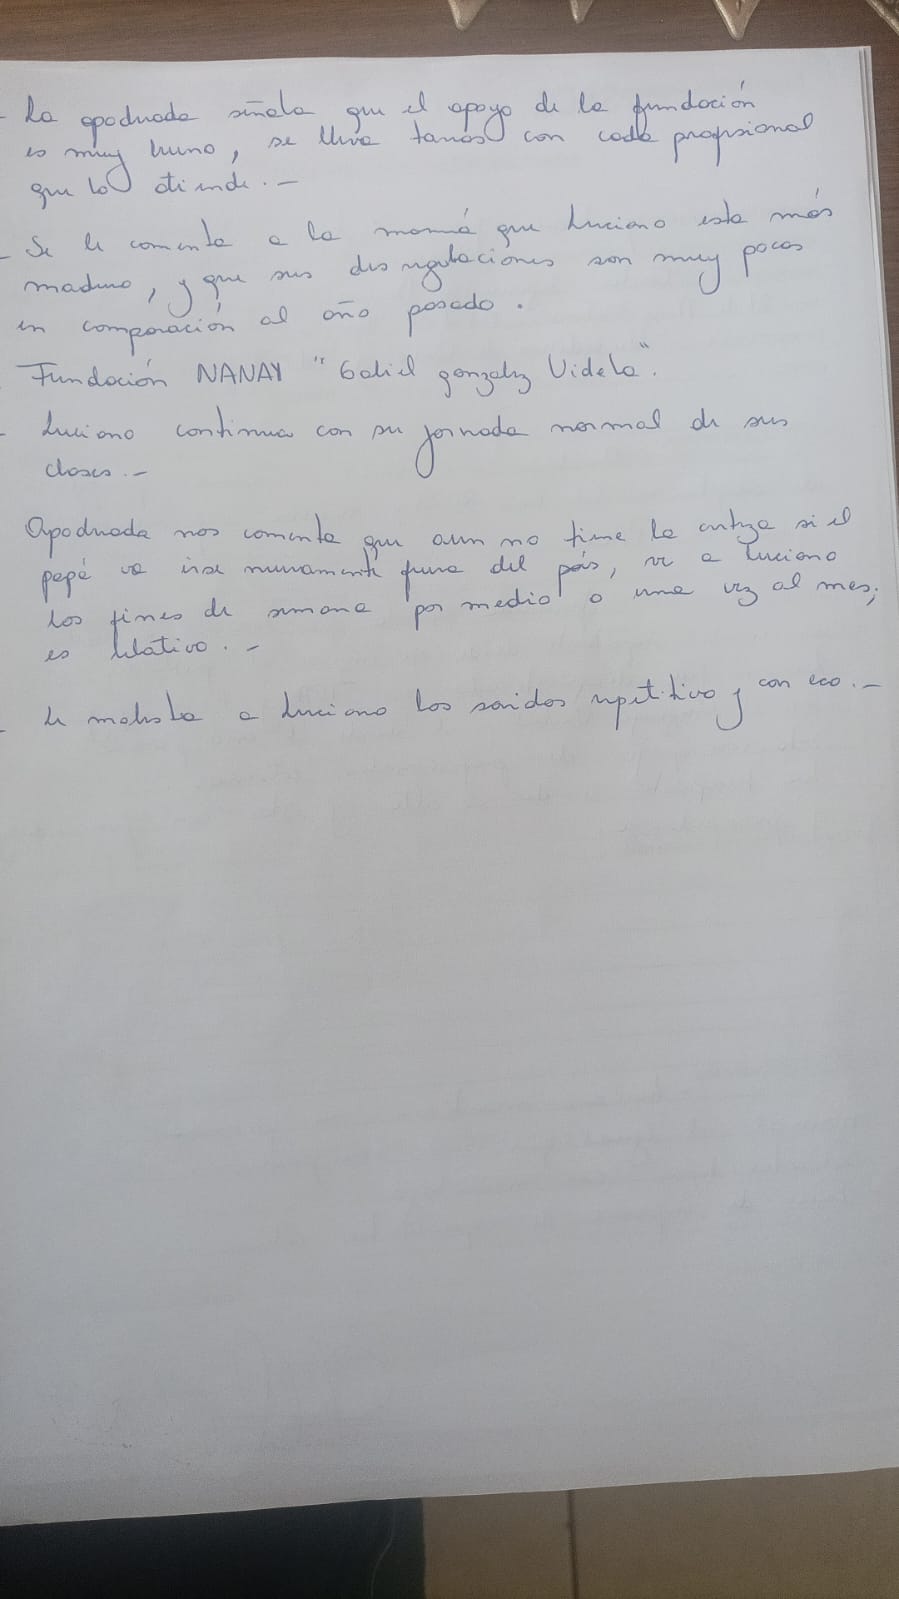 - La apoderada señala que el apoyo de la fundación
es muy bueno, se lleva tareas con cada profesional
que lo atiende.-
- Se le comenta a la mamá que Luciano esta más
maduro, y que sus desregulaciones son muy pocas
en comparación al año pasado.
- Fundación NANAY " Gabriel gonzalez Videla".
- Luciano continua con su jornada normal de sus
clases.-
Apoderada nos comenta que aun no tiene la certeza si el
papá va irse nuevamente fuera del país, ve a Luciano
los fines de semana por medio o una vez al mes,
es relativo.-
- Le molesta a Luciano los sonidos repetitivo y con eco.-